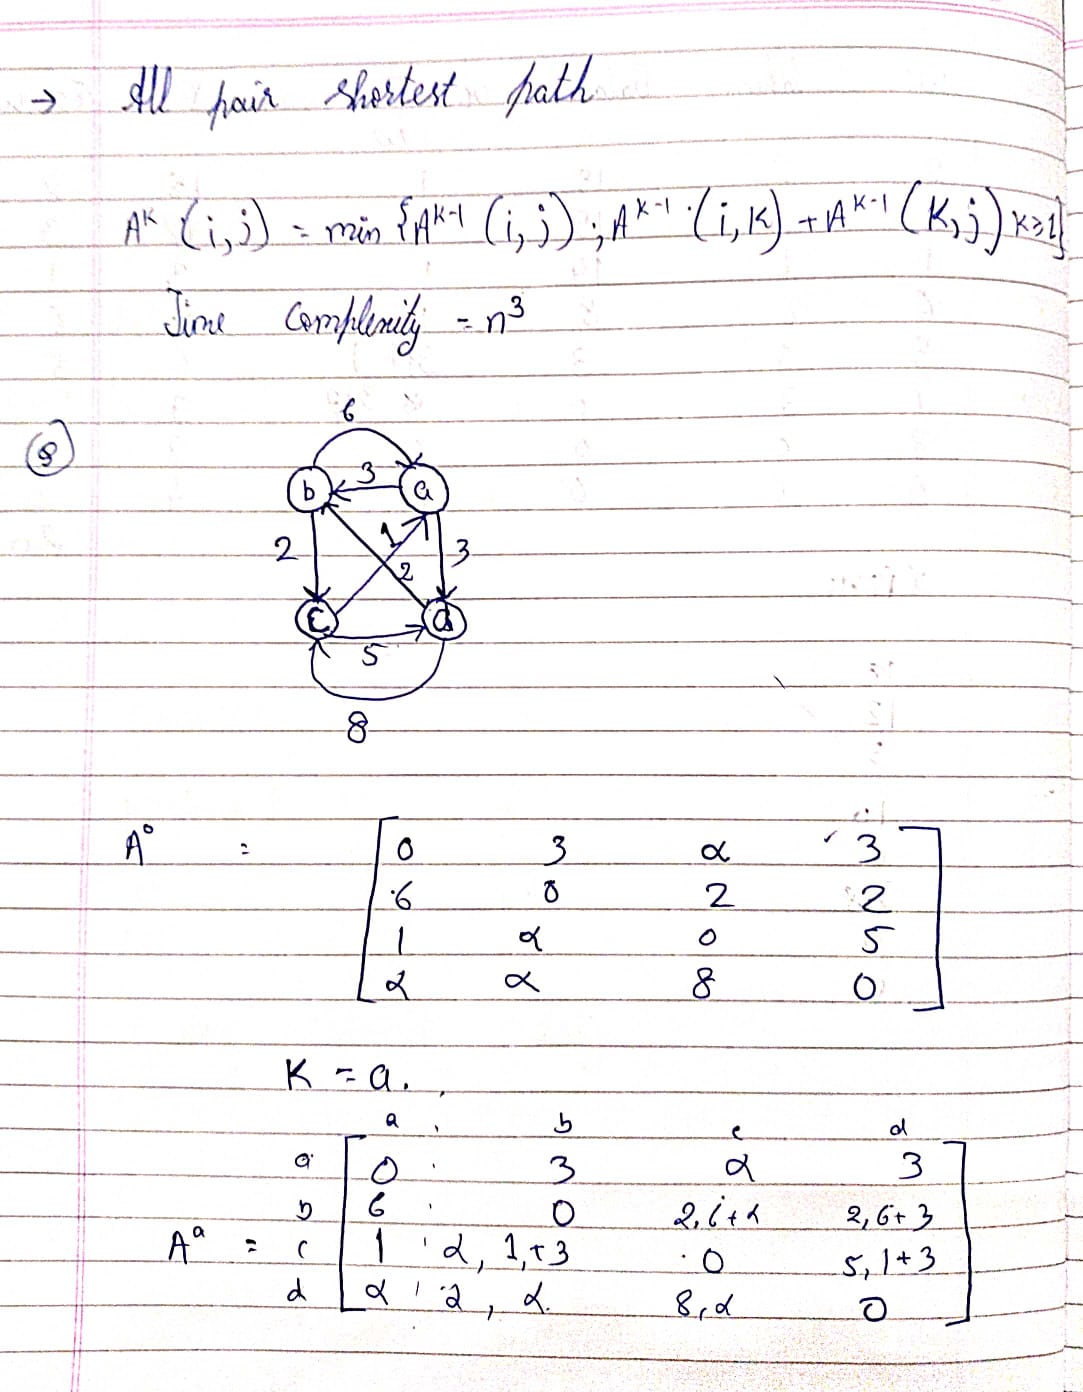 → All pair shortest path
A^K (i,j) = min {A^K-1 (i,j), A^K-1 (i,K) + A^K-1 (K,j) K≥1}
Time Complexity = n^3
Q
6
b 3 a
2 1 2 3
c d
5
8
A^0 = [ 0 3 α 3
6 0 2 2
1 α 0 5
α α 8 0 ]
K = a.
a b c d
a 0 3 α 3
b 6 0 2, 6+α 2, 6+3
A^a = c 1 α, 1,+3 0 5, 1+3
d α 2, α. 8, α 0